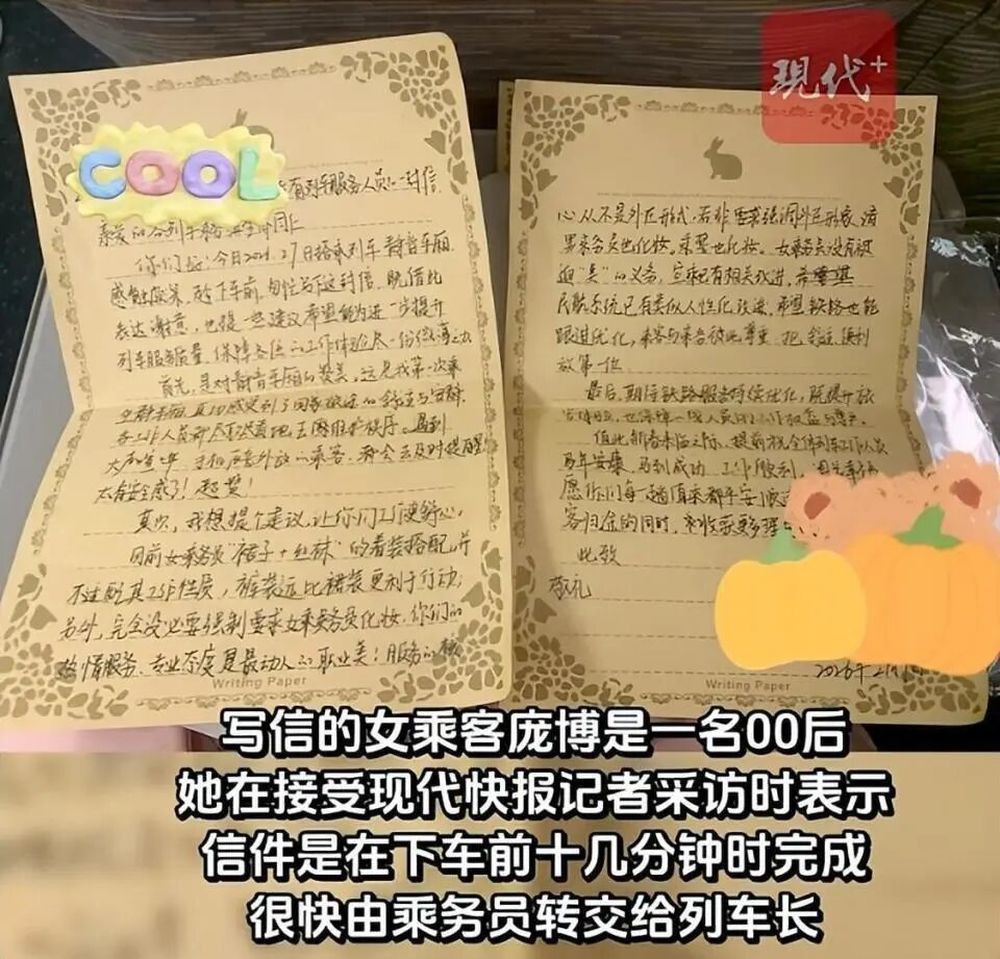 現代+
COOL
有列车服务人员的一封信
亲爱的
你们好!今日2026.2.7日搭乘列车静音车厢
感触颇深,于下车前,匆忙写下这封信,既借此
表达谢意,也提一些建议希望能为进一步提升
列车服务质量,保障各位的工作体验尽一份绵薄之力
首先,是对静音车厢的赞美。这是我第一次乘
大声喧哗、手机声音外放的乘客,都会去及时提醒
太有安全感了!超赞!
其次,我想提个建议,让你们工作更舒心。
目前女乘务员"裙子+丝袜"的着装搭配,并
不适配其工作性质,裤装远比裙装更利于行动;
另外,完全没必要强制要求女乘务员化妆,你们的
热情服务、专业态度是最动人的职业美!服务的核
Writing Paper
心从不是外在形式,若非要求强调外在形象,请
男乘务员也化妆,乘警也化妆。女乘务员没有被
迫"美"的义务,
民航系统已有类似人性化改进,希望铁路也能
跟进优化,乘客与乘务彼此尊重,把安全、便利
放第一位。
最后,期待铁路服务持续优化,既提升旅
客体验,也保障一线人员的工作权益与尊严。
值此新春来临之际,提前祝全体列车工作人员
马年安康,马到成功,工作顺利,
愿你们每一趟值乘都平安顺
客归途的同时,也收获更多
此致
敬礼
2026年2月
Writing Paper
写信的女乘客庞博是一名00后
她在接受现代快报记者采访时表示
信件是在下车前十几分钟时完成
很快由乘务员转交给列车长